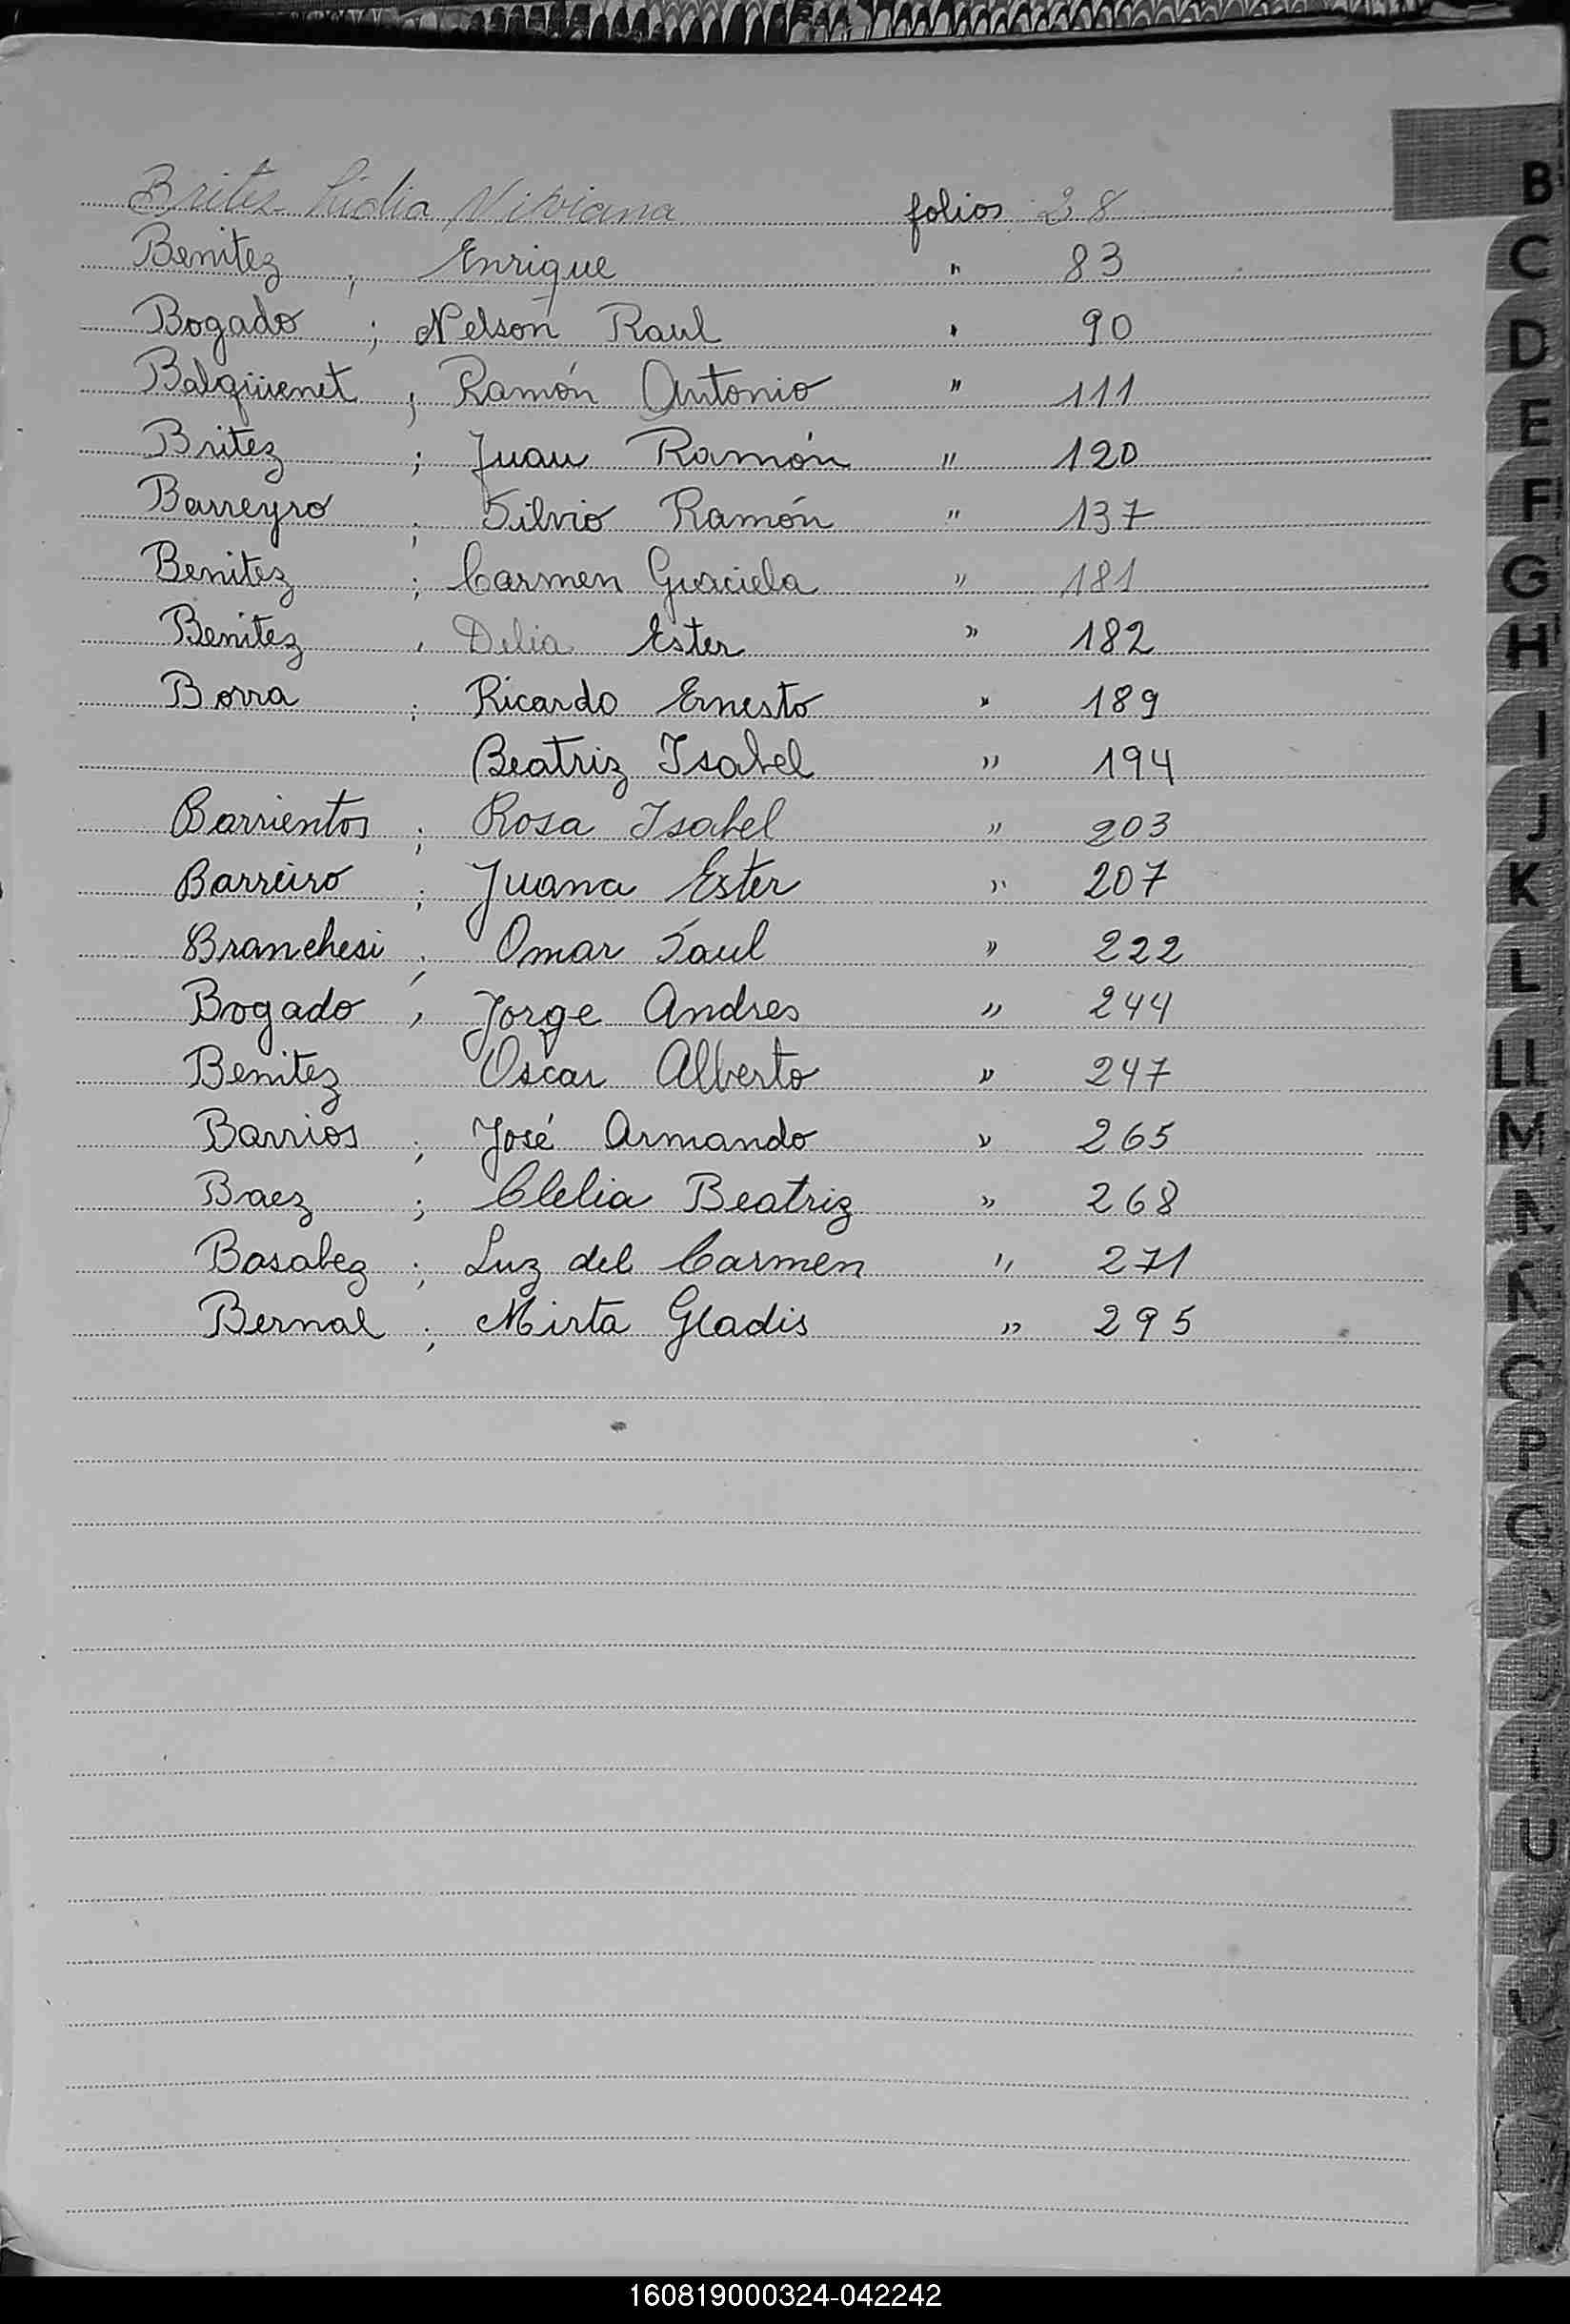 Britez Lidia Viviana folios 28
Benitez ; Enrique " 83
Bogado ; Nelson Raul " 90
Balqüienet ; Ramón Antonio " 111
Britez ; Juan Ramón " 120
Barreyro ; Silvio Ramón " 137
Benitez ; Carmen Graciela " 181
Benitez , Delia Ester " 182
Borra ; Ricardo Ernesto " 189
Beatriz Isabel " 194
Barrientos ; Rosa Isabel " 203
Barreiro ; Juana Ester " 207
Branchesi ; Omar Saul " 222
Bogado , Jorge Andres " 244
Benitez Oscar Alberto " 247
Barrios ; José Armando " 265
Baez ; Clelia Beatriz " 268
Basabez ; Luz del Carmen " 271
Bernal ; Mirta Gladis " 295
B
C
D
E
F
G
H
I
J
K
L
LL
M
N
Ñ
O
P
Q
U
160819000324-042242